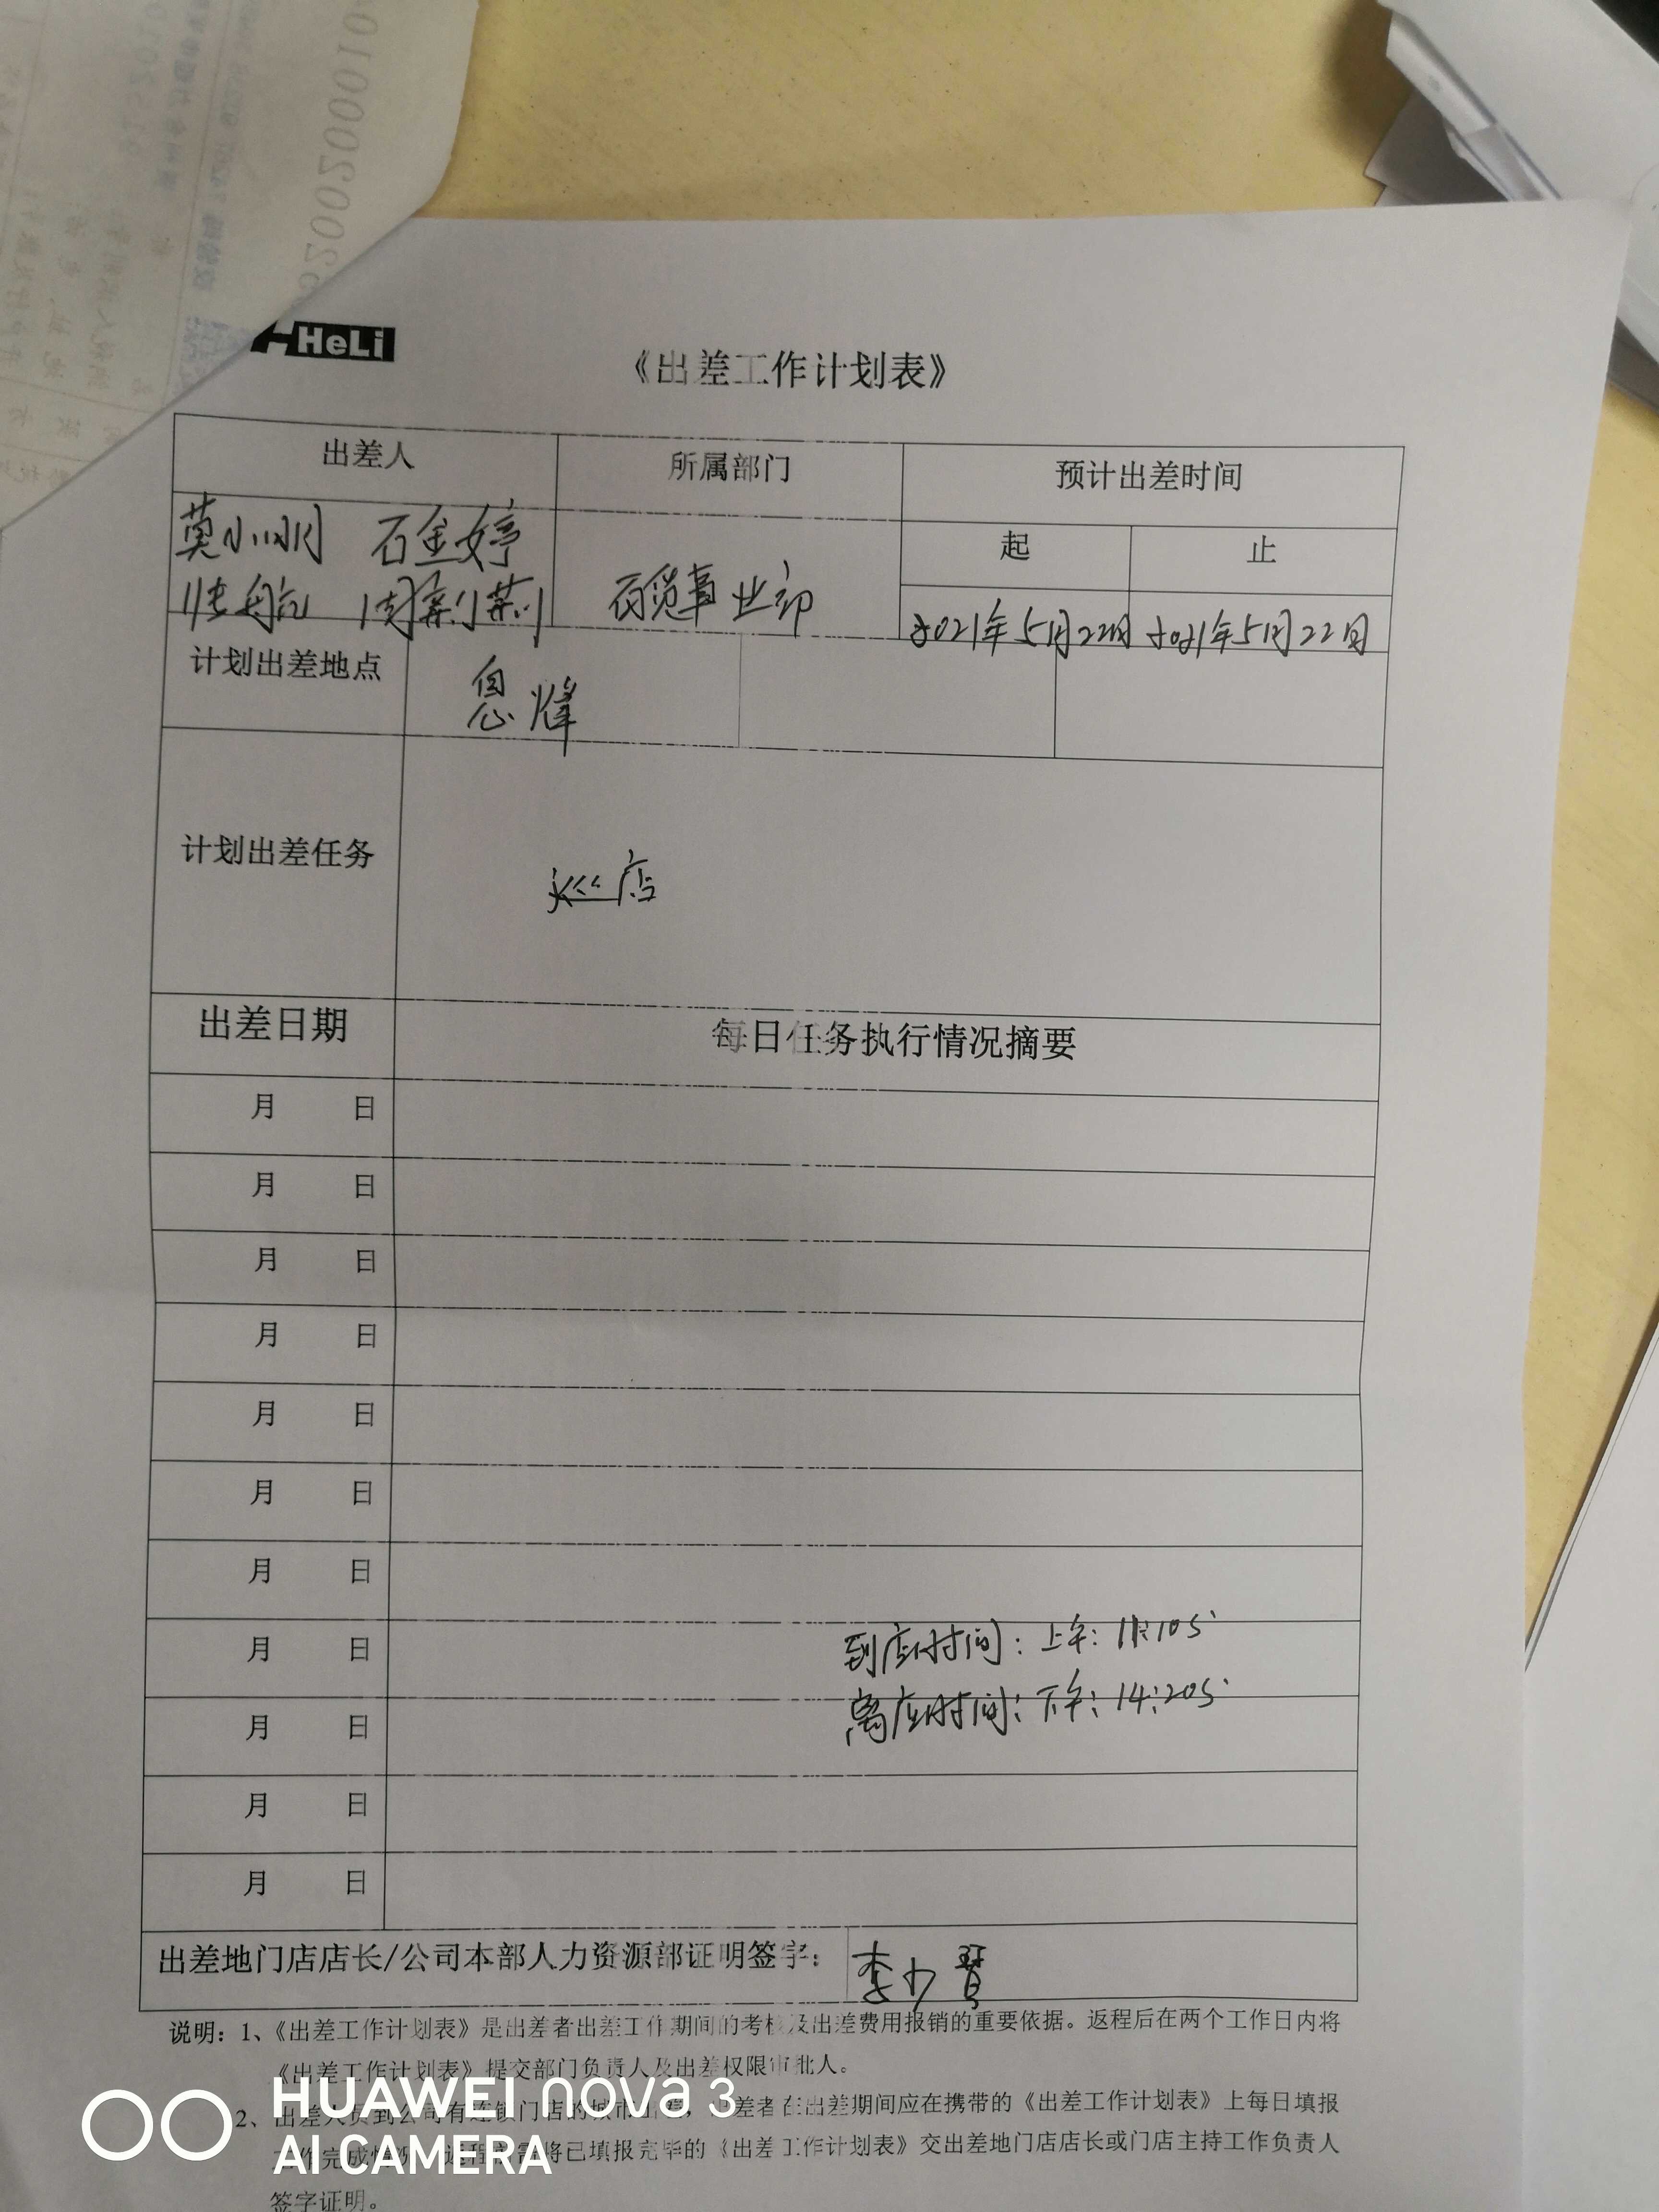 HeLi
《出差工作计划表》
出差人 所属部门 预计出差时间
起 止
莫小明 石金婷
张航 周莉莉
百货事业部
2021年5月22日 2021年5月22日
计划出差地点 息烽
计划出差任务 巡店
出差日期 每日任务执行情况摘要
月 日
月 日
月 日
月 日
月 日
月 日
月 日
月 日
到店时间:上午:11:10
离店时间:下午:14:20
月 日
月 日
月 日
出差地门店店长/公司本部人力资源部证明签字:
说明:1、《出差工作计划表》是出差者出差工作期间的考核及出差费用报销的重要依据。返程后在两个工作日内将
《出差工作计划表》提交部门负责人及出差权限审批人。
2、出差人员到公司有连锁门店的城市出差,出差者在出差期间应在携带的《出差工作计划表》上每日填报
将已填报完毕的《出差工作计划表》交出差地门店店长或门店主持工作负责人
签字证明。
HUAWEI nova 3
AI CAMERA